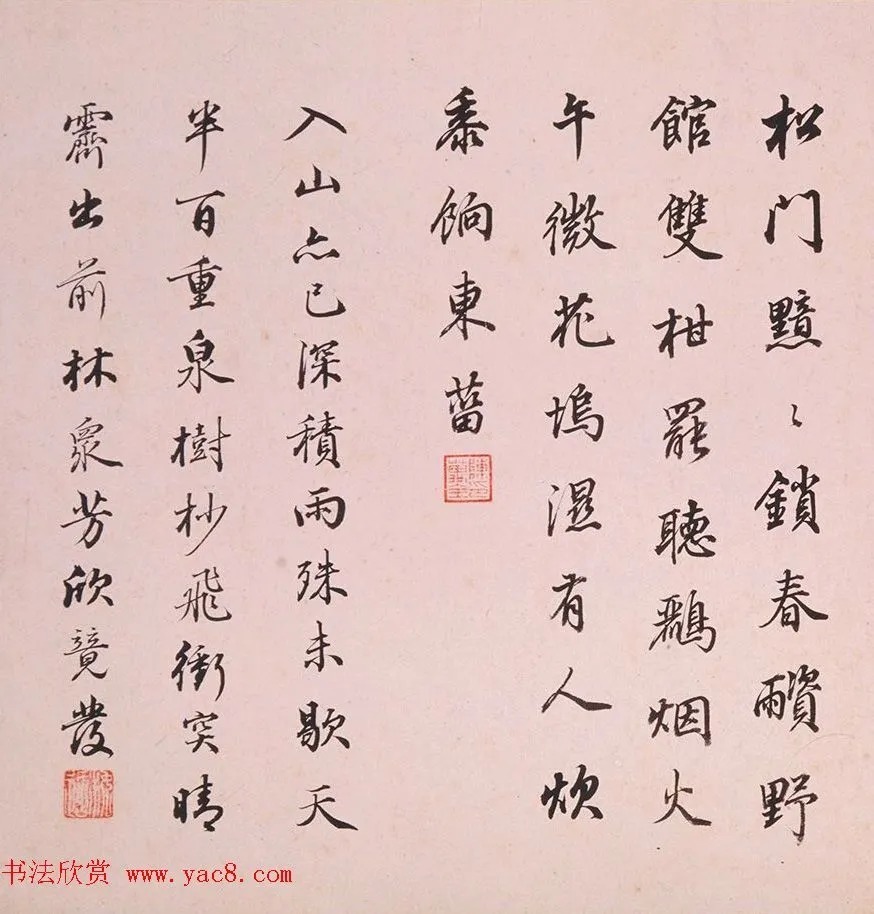 松門黯〻鎖春野
館雙柑罷聽鸝烟火
午微花塢濕有人炊
黍餉東菑
入山亦已深積雨殊未歇天
半百重泉樹杪飛衝突晴
霽出前林衆芳欣競發
书法欣赏 www.yac8.com